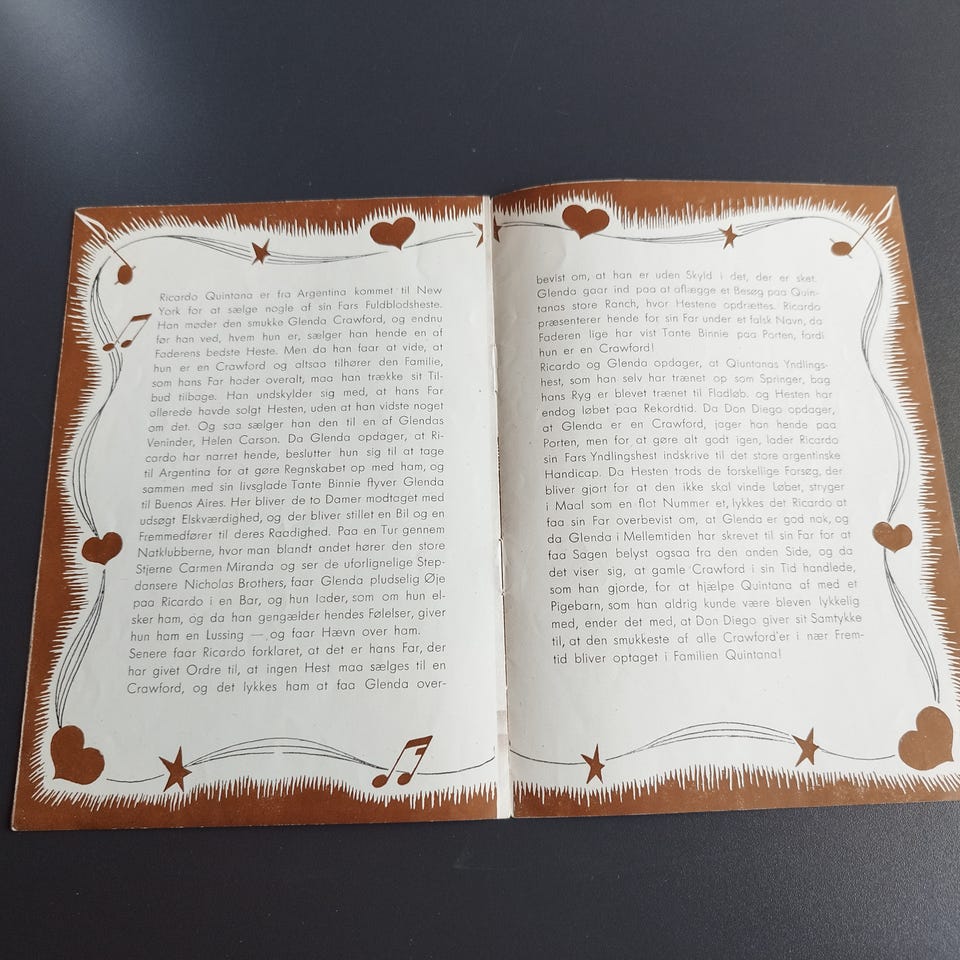 Ricardo Quintana er fra Argentina kommet til New
York for at sælge nogle af sin Fars Fuldblodsheste.
Han møder den smukke Glenda Crawford, og endnu
før han ved, hvem hun er, sælger han hende en af
Faderens bedste Heste. Men da han faar at vide, at
hun er en Crawford og altsaa tilhører den Familie,
som hans Far hader overalt, maa han trække sit Til-
bud tilbage. Han undskylder sig med, at hans Far
allerede havde solgt Hesten, uden at han vidste noget
om det. Og saa sælger han den til en af Glendas
Veninder, Helen Carson. Da Glenda opdager, at Ri-
cardo har narret hende, beslutter hun sig til at tage
til Argentina for at gøre Regnskabet op med ham, og
sammen med sin livsglade Tante Binnie flyver Glenda
til Buenos Aires. Her bliver de to Damer modtaget med
udsøgt Elskværdighed, og der bliver stillet en Bil og en
Fremmedfører til deres Raadighed. Paa en Tur gennem
Natklubberne, hvor man blandt andet hører den store
Stjerne Carmen Miranda og ser de uforlignelige Step-
dansere Nicholas Brothers, faar Glenda pludselig Øje
paa Ricardo i en Bar, og hun lader, som om hun el-
sker ham, og da han gengælder hendes Følelser, giver
hun ham en Lussing — og faar Hævn over ham.
Senere faar Ricardo forklaret, at det er hans Far, der
har givet Ordre til, at ingen Hest maa sælges til en
Crawford, og det lykkes ham at faa Glenda over-
bevist om, at han er uden Skyld i det, der er sket.
Glenda gaar ind paa at aflægge et Besøg paa Quin-
tanas store Ranch, hvor Hestene opdrættes. Ricardo
præsenterer hende for sin Far under et falsk Navn, da
Faderen lige har vist Tante Binnie paa Porten, fordi
hun er en Crawford!
Ricardo og Glenda opdager, at Qiuntanas Yndlings-
hest, som han selv har trænet op som Springer, bag
hans Ryg er blevet trænet til Fladløb, og Hesten har
endog løbet paa Rekordtid. Da Don Diego opdager,
at Glenda er en Crawford, jager han hende paa
Porten, men for at gøre alt godt igen, lader Ricardo
sin Fars Yndlingshest indskrive til det store argentinske
Handicap. Da Hesten trods de forskellige Forsøg, der
bliver gjort for at den ikke skal vinde Løbet, stryger
i Maal som en flot Nummer et, lykkes det Ricardo at
faa sin Far overbevist om, at Glenda er god nok, og
da Glenda i Mellemtiden har skrevet til sin Far for at
faa Sagen belyst ogsaa fra den anden Side, og da
det viser sig, at gamle Crawford i sin Tid handlede,
som han gjorde, for at hjælpe Quintana af med et
Pigebarn, som han aldrig kunde være bleven lykkelig
med, ender det med, at Don Diego giver sit Samtykke
til, at den smukkeste af alle Crawford'er i nær Frem-
tid bliver optaget i Familien Quintana!